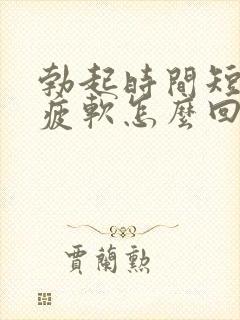 勃起時間短
疲軟怎麼回
賈蘭勲